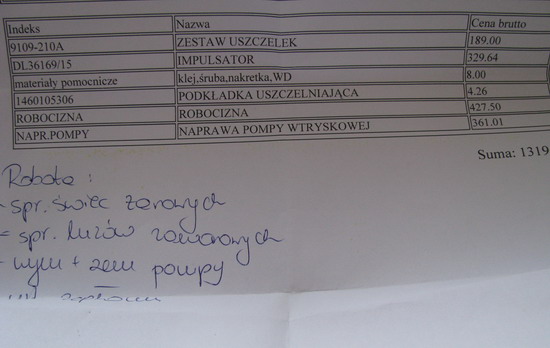 Indeks Nazwa Cena brutto
9109-210A ZESTAW USZCZELEK 189.00
DL36169/15 IMPULSATOR 329.64
materiały pomocnicze klej,śruba,nakretka,WD 8.00
1460105306 PODKŁADKA USZCZELNIAJĄCA 4.26
ROBOCIZNA ROBOCIZNA 427.50
NAPR.POMPY NAPRAWA POMPY WTRYSKOWEJ 361.01
Suma: 1319
Robota:
- spr. świec żarowych
- spr. luzów zaworowych
- wym + zam pompy